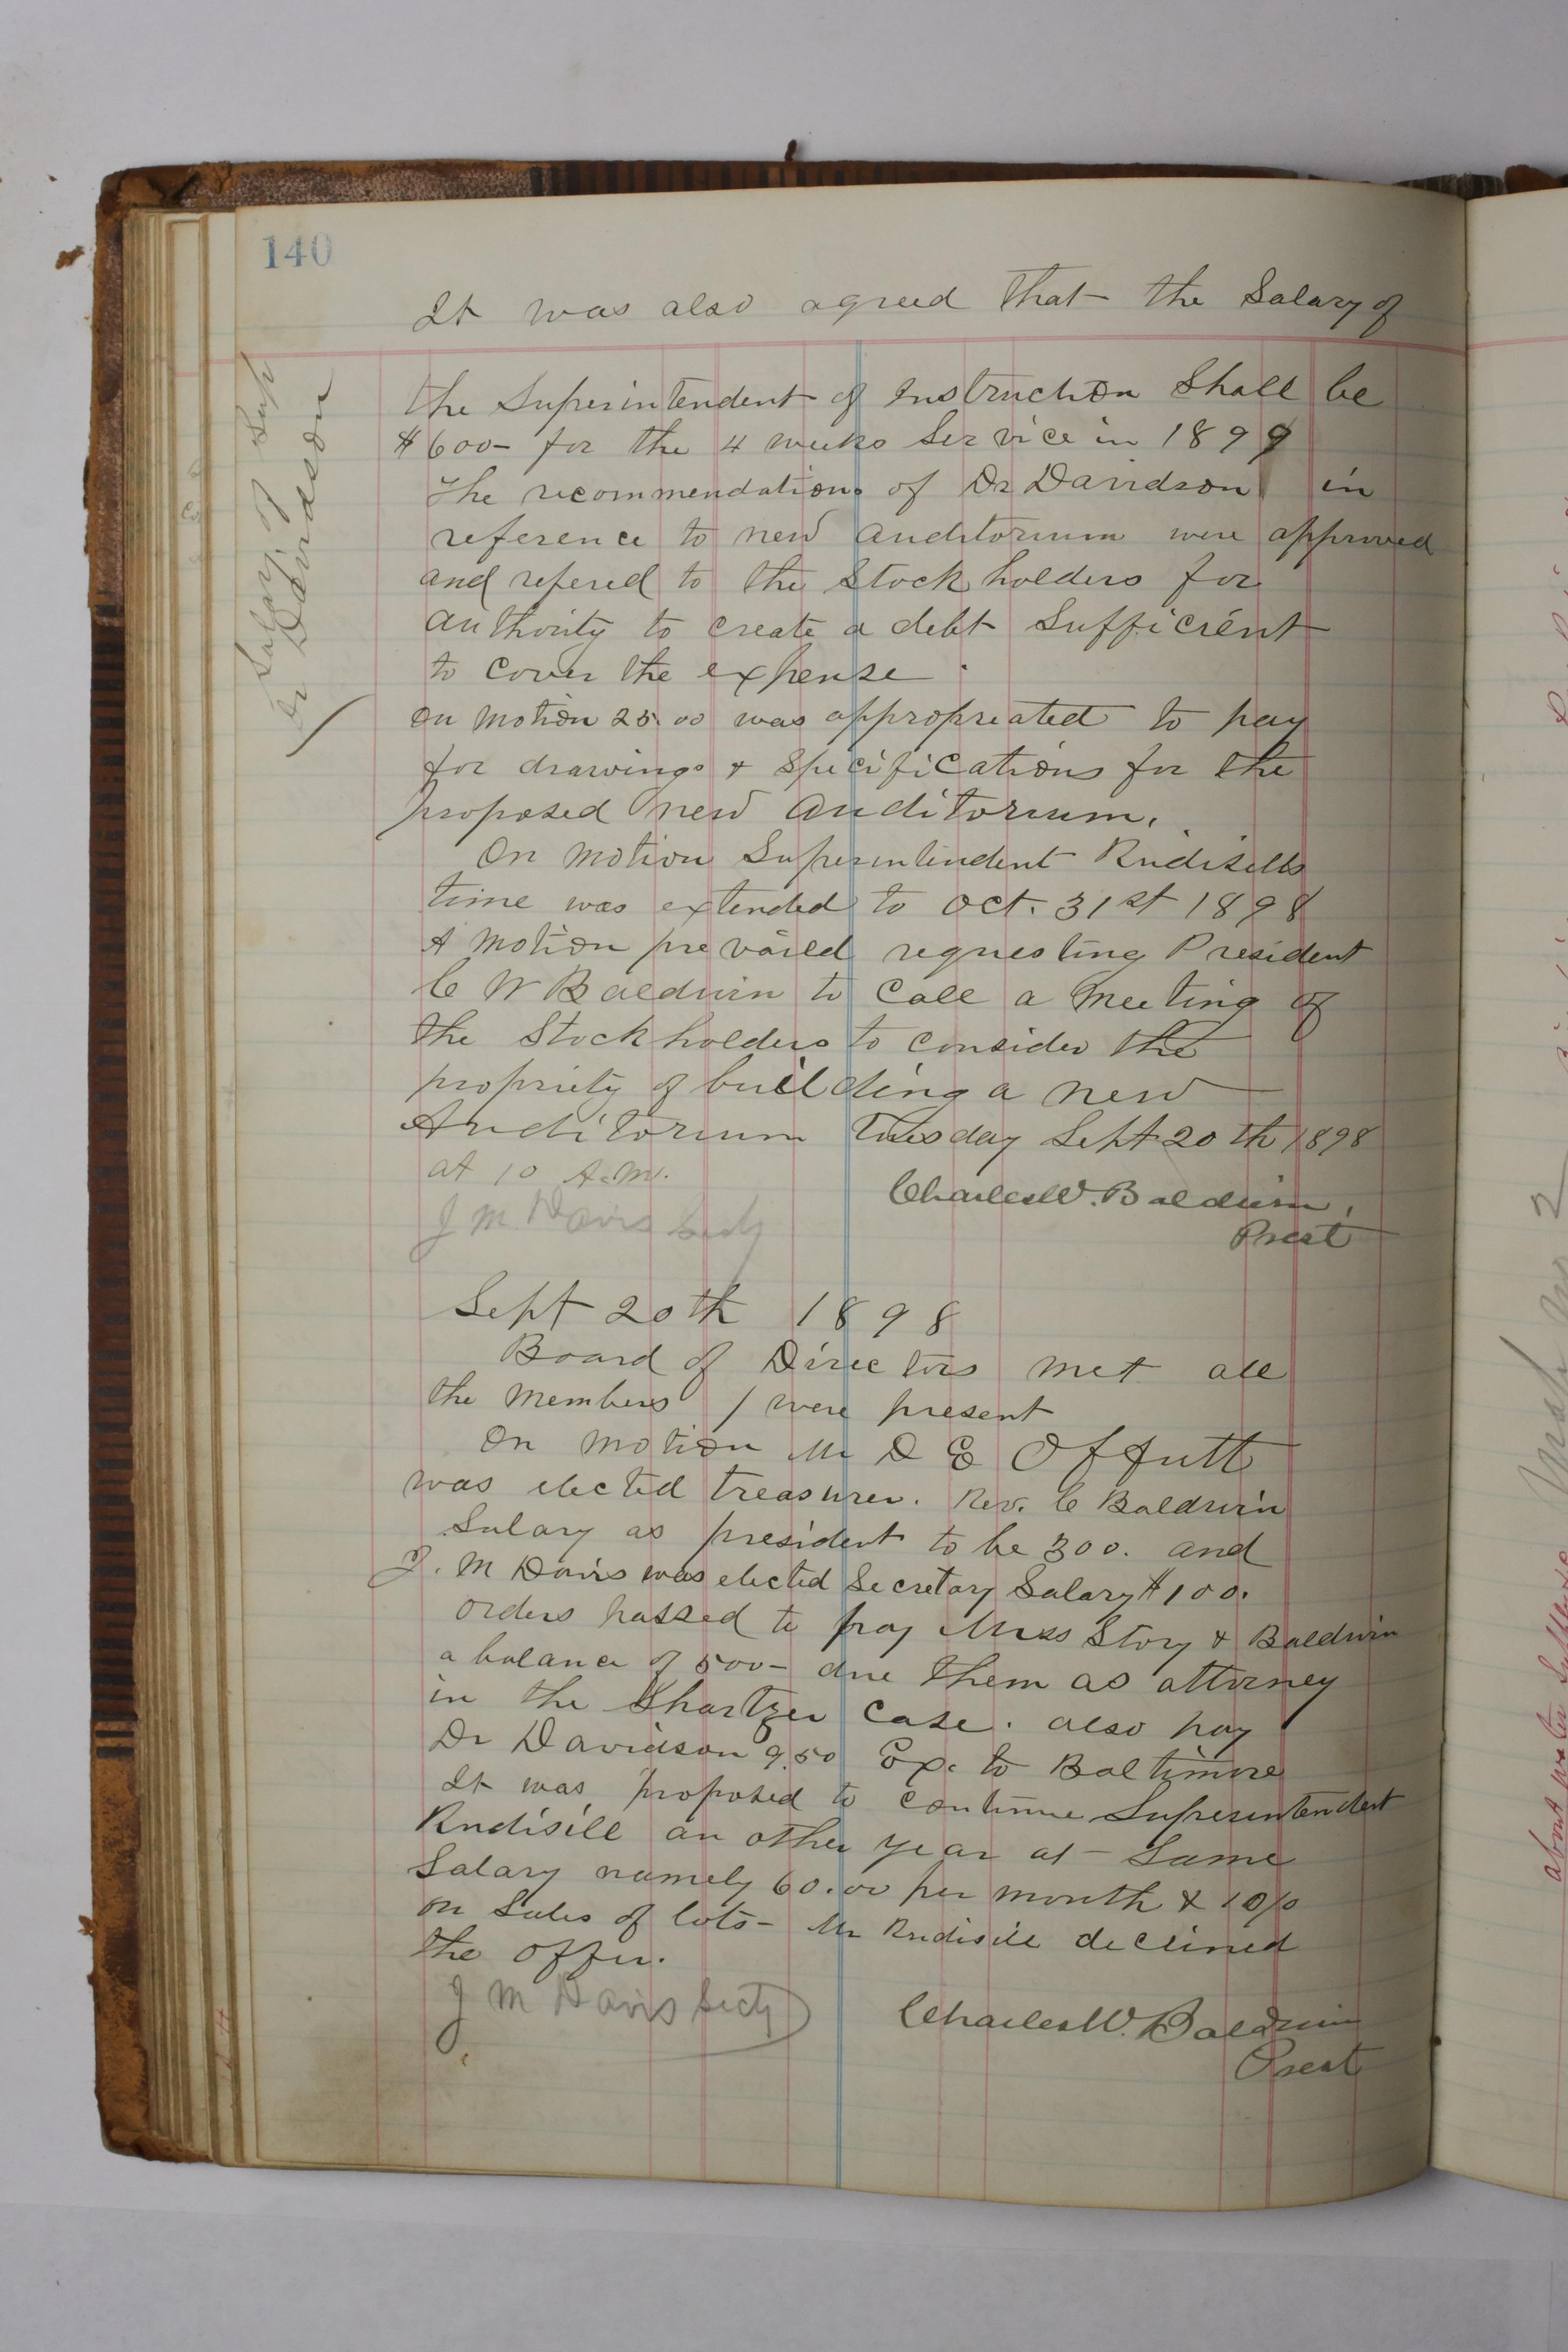 140
It was also agreed that the Salary of
Salary of Sup
Dr Davidson
the Superintendent of Instruction Shall be
$600- for the 4 weeks Service in 1899
The recommendations of Dr Davidson in
reference to new auditorium were approved
and refered to the Stockholders for
authority to create a debt Sufficient
to cover the expense
on motion 25.00 was appropreated to pay
for drawings & Specifications for the
proposed new auditorium.
On motion Superintendent Rudisills
time was extended to Oct. 31st 1898
A motion prevailed requesting President
C W Baldwin to Call a Meeting of
the Stockholders to consider the
propriety of building a new
Auditorium Tuesday Sept 20th 1898
at 10 A.M.
Charles W. Baldwin,
J M Davis Secty
Prest
Sept 20th 1898
Board of Directors met all
the Members / were present
On motion Mr D E Offutt
was elected treasurer. Rev. C Baldwin
Salary as president to be 300. and
J. M Davis was elected Secretary Salary $100.
Orders passed to pay Mess Story & Baldwin
a balance of 500- due them as attorney
in the Shartzer Case. also pay
Dr Davidson 9.50 Ex. to Baltimore
It was proposed to continue Superintendent
Rudisill an other year at - Same
Salary namely 60.00 per month & 10%
on Sales of lots - Mr Rudisill declined
the offer.
J M Davis Secty
Charles W. Baldwin
Prest